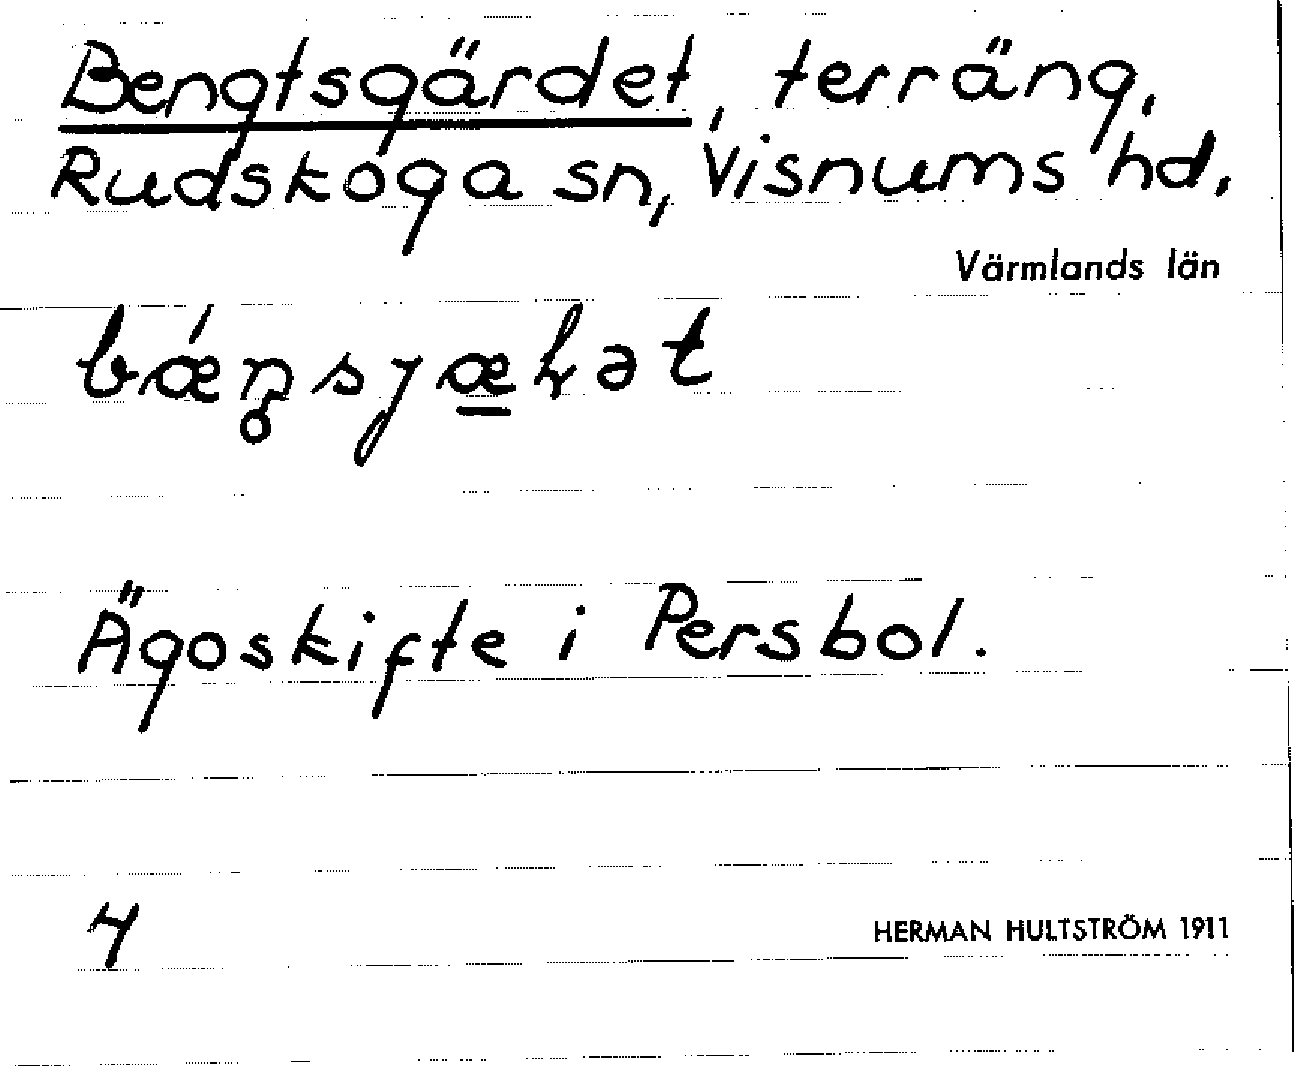 Bengtsgärdet, terräng,
Rudskoga sn, Visnums hd,
Värmlands län
Ägoskifte i Persbol.
4
HERMAN HULTSTRÖM 1911